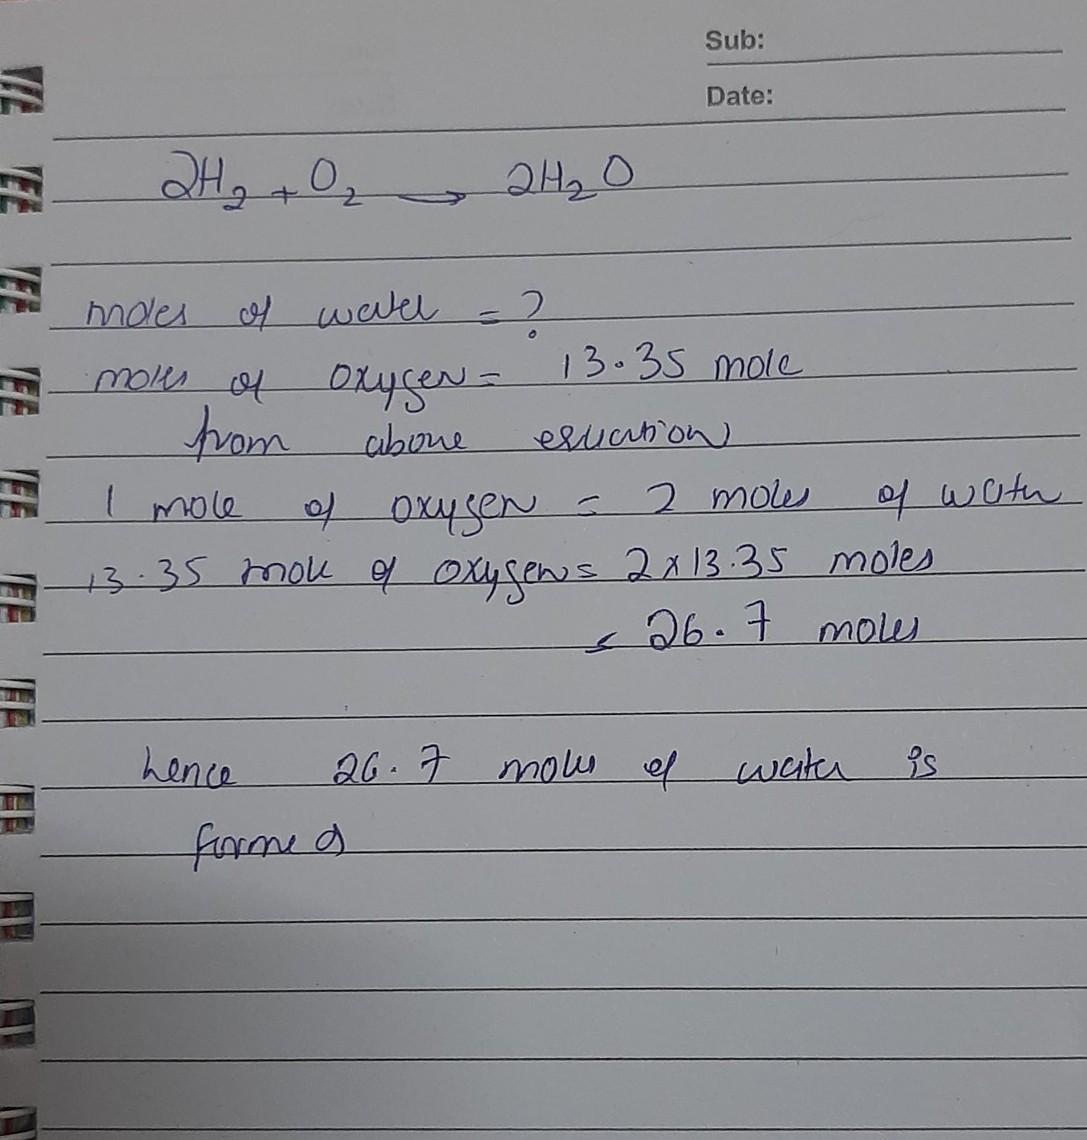 Sub:
Date:
2H₂ + O₂ → 2H₂O
moles of water = ?
moles of oxygen = 13.35 mole
from above equation
1 mole of oxygen = 2 moles of water
13.35 mole of oxygen = 2 x 13.35 moles
= 26.7 moles
hence 26.7 moles of water is
formed